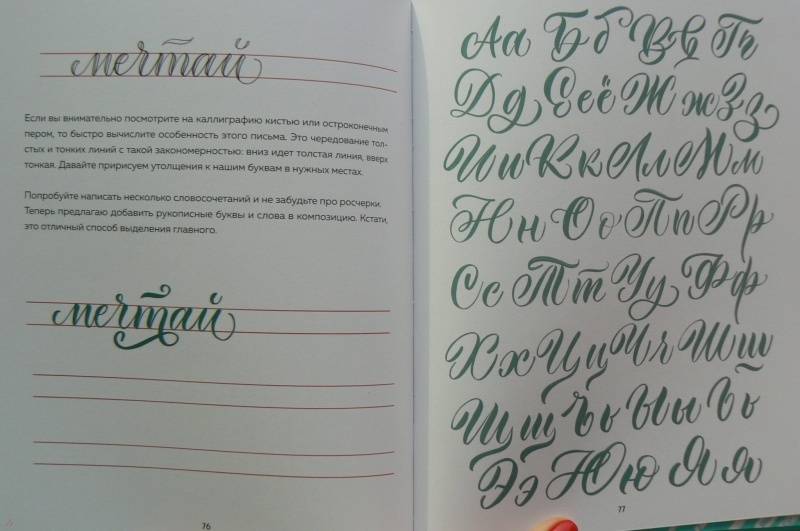 мечтай
Если вы внимательно посмотрите на каллиграфию кистью или остроконечным
пером, то быстро вычислите особенность этого письма. Это чередование тол-
стых и тонких линий с такой закономерностью: вниз идет толстая линия, вверх
тонкая. Давайте пририсуем утолщения к нашим буквам в нужных местах.
Попробуйте написать несколько словосочетаний и не забудьте про росчерки.
Теперь предлагаю добавить рукописные буквы и слова в композицию. Кстати,
это отличный способ выделения главного.
мечтай
76
Аа Бб Вв Гг
Дд Ееё Жж Зз
Ии Кк Лл Мм
Нн Оо Пп Рр
Сс Тт Уу Фф
Хх Цц Чч Шш
Щщ Ъъ Ыы Ьь
Ээ Юю Яя
77